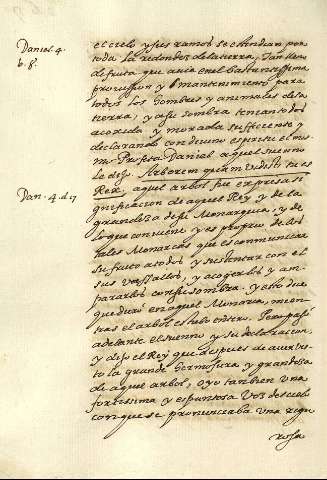 Daniel. 4.
b. 8.
el cielo y sus ramos se estendian por
toda la redondez de la tierra, tan lleno
de fruta que avia en el bastantissima
provission y mantenimiento para
todos los hombres y animales de la
tierra, y a su sombra tenian todos
acogida y morada sufficiente y
declarando con divino espiritu el mis
mo Profeta Daniel aquel sueño
le dijo Arborem quam vidisti tu es
Dan. 4. d. 17
Rex, aquel arbol fue expressa si
gnificacion de aquel Rey y de la
grandeza de su Monarquia, y de
lo que conviene y es propio de los
tales Monarcas que es comunicar
su fruto a todos y sustentar con el
sus vassallos, y acogerlos y am
pararlos con su sombra. y esto due
que duró en aquel Monarca, mien
tras el arbol estubo entero. Pero pasó
adelante el sueño y su declaracion,
y dijo el Rey que despues de aver vis
to la grande hermosura y grandeza
de aquel arbol, oyo tambien una
fortissima y espantosa voz del cielo
con que se pronunciaba una rigu
rosa